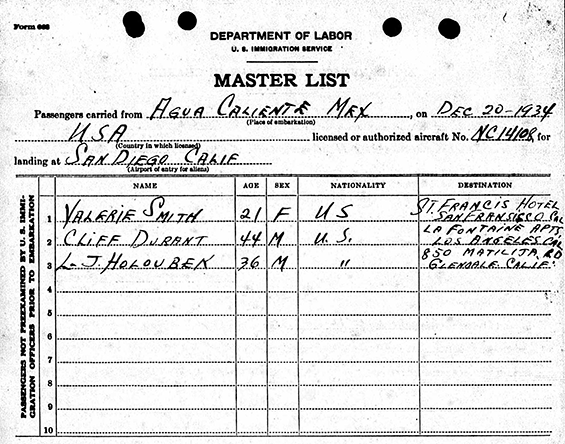 Form 668
DEPARTMENT OF LABOR
U. S. IMMIGRATION SERVICE
MASTER LIST
Passengers carried from AGUA CALIENTE MEX, on DEC 20-1934
(Place of embarkation)
USA licensed or authorized aircraft No. NC14108 for
(Country in which licensed)
landing at SAN DIEGO CALIF
(Airport of entry for aliens)
PASSENGERS NOT PREEXAMINED BY U. S. IMMI-
GRATION OFFICERS PRIOR TO EMBARKATION
NAME AGE SEX NATIONALITY DESTINATION
1 VALERIE SMITH 21 F US ST. FRANCIS HOTEL
SAN FRANSISCO CAL
2 CLIFF DURANT 44 M U.S. LA FONTAINE APTS
LOS ANGELES, CAL
3 L-J. HOLOUBEK 36 M " 850 MATILIJA, RD
GLENDALE. CALIF.
4
5
6
7
8
9
10